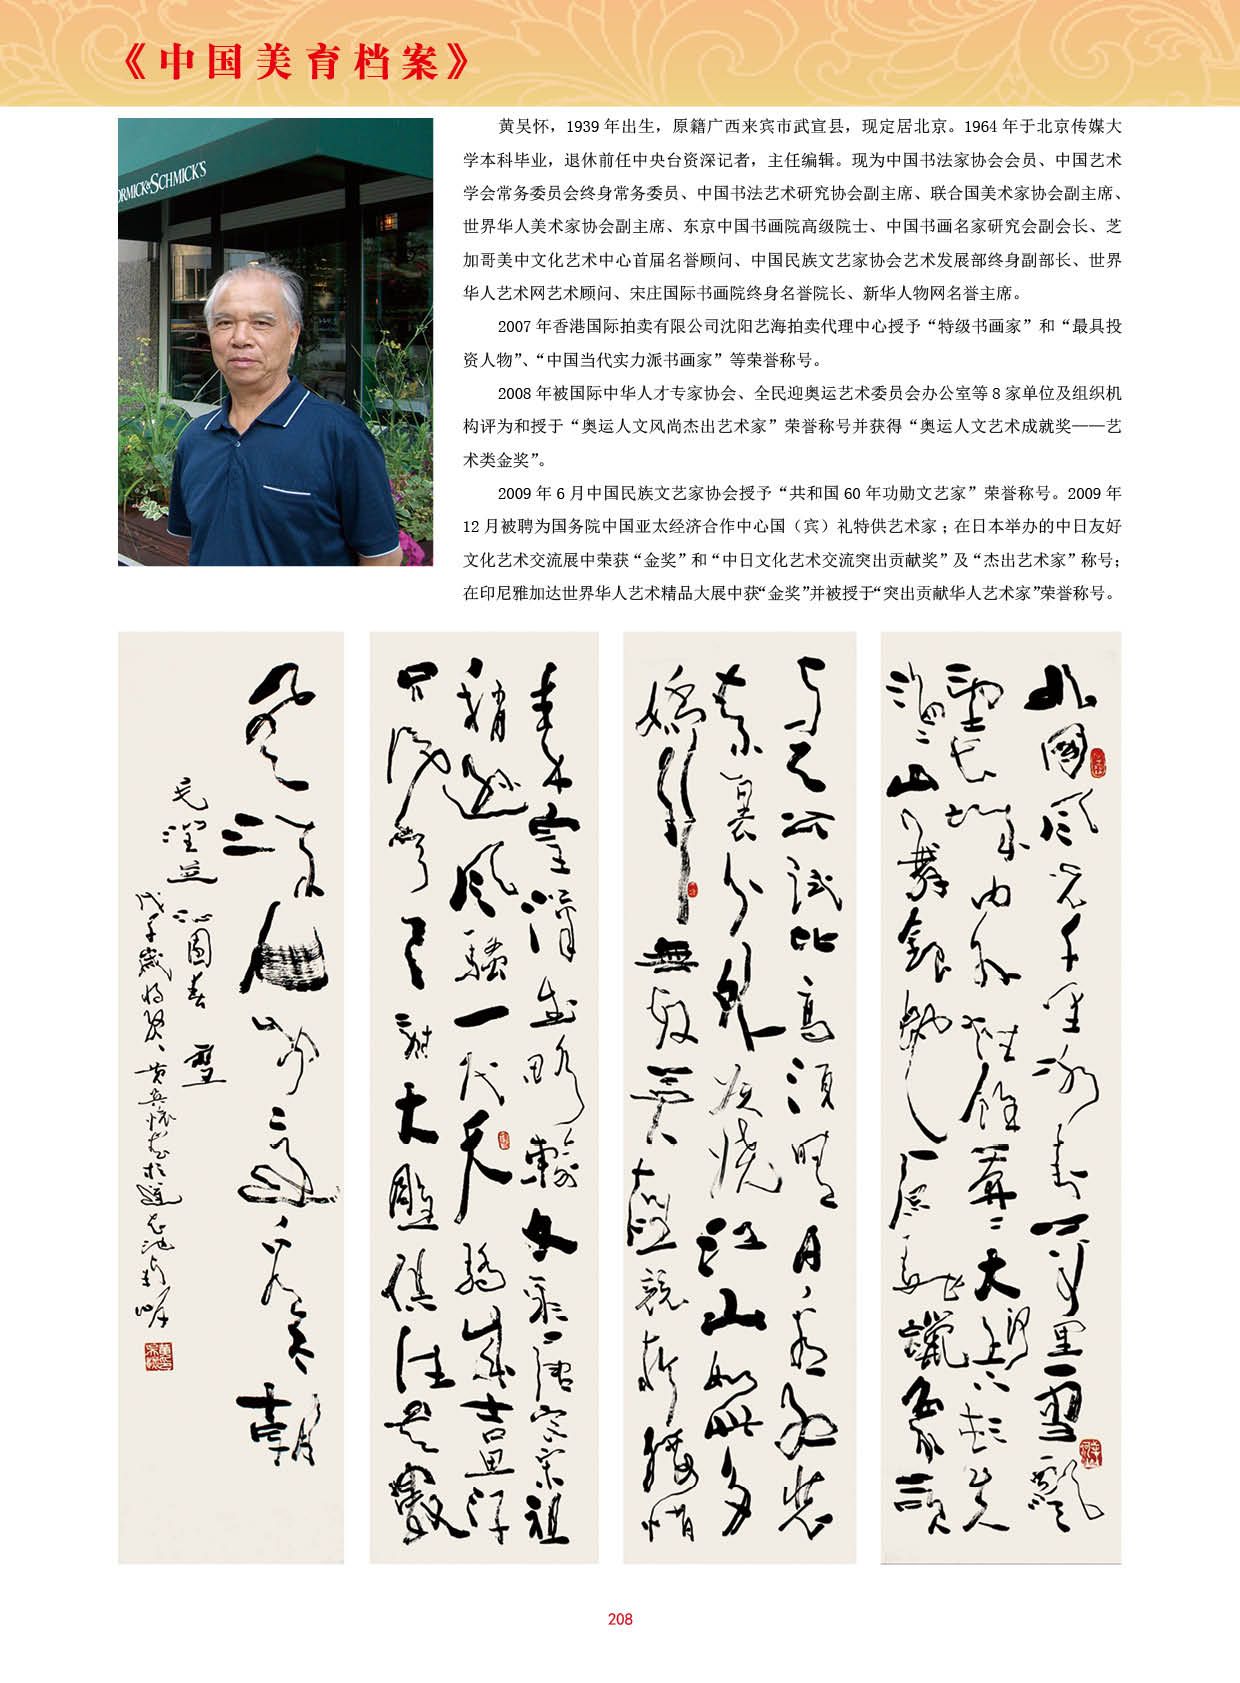 《中国美育档案》
ORMICK&SCHMICK'S
黄吴怀，1939 年出生，原籍广西来宾市武宣县，现定居北京。1964 年于北京传媒大
学本科毕业，退休前任中央台资深记者，主任编辑。现为中国书法家协会会员、中国艺术
学会常务委员会终身常务委员、中国书法艺术研究协会副主席、联合国美术家协会副主席、
世界华人美术家协会副主席、东京中国书画院高级院士、中国书画名家研究会副会长、芝
加哥美中文化艺术中心首届名誉顾问、中国民族文艺家协会艺术发展部终身副部长、世界
华人艺术网艺术顾问、宋庄国际书画院终身名誉院长、新华人物网名誉主席。
2007 年香港国际拍卖有限公司沈阳艺海拍卖代理中心授予“特级书画家”和“最具投
资人物”、“中国当代实力派书画家”等荣誉称号。
2008 年被国际中华人才专家协会、全民迎奥运艺术委员会办公室等 8 家单位及组织机
构评为和授于“奥运人文风尚杰出艺术家”荣誉称号并获得“奥运人文艺术成就奖——艺
术类金奖”。
2009 年 6 月中国民族文艺家协会授予“共和国 60 年功勋文艺家”荣誉称号。2009 年
12 月被聘为国务院中国亚太经济合作中心国（宾）礼特供艺术家；在日本举办的中日友好
文化艺术交流展中荣获“金奖”和“中日文化艺术交流突出贡献奖”及“杰出艺术家”称号；
在印尼雅加达世界华人艺术精品大展中获“金奖”并被授于“突出贡献华人艺术家”荣誉称号。
北國风光千里冰封万里雪飘
望长城内外惟餘莽〻大河上下顿失
滔〻山舞銀蛇原驰蠟象欲
与天公試比高須晴日看红装
素裹分外妖嬈江山如此多
嬌引無数英雄競折腰惜
秦皇漢武略輸文采唐宗宋祖
稍遜风騷一代天驕成吉思汗
只识彎弓射大雕俱往矣數
风流人物还看今朝
毛澤东沁園春雪
208